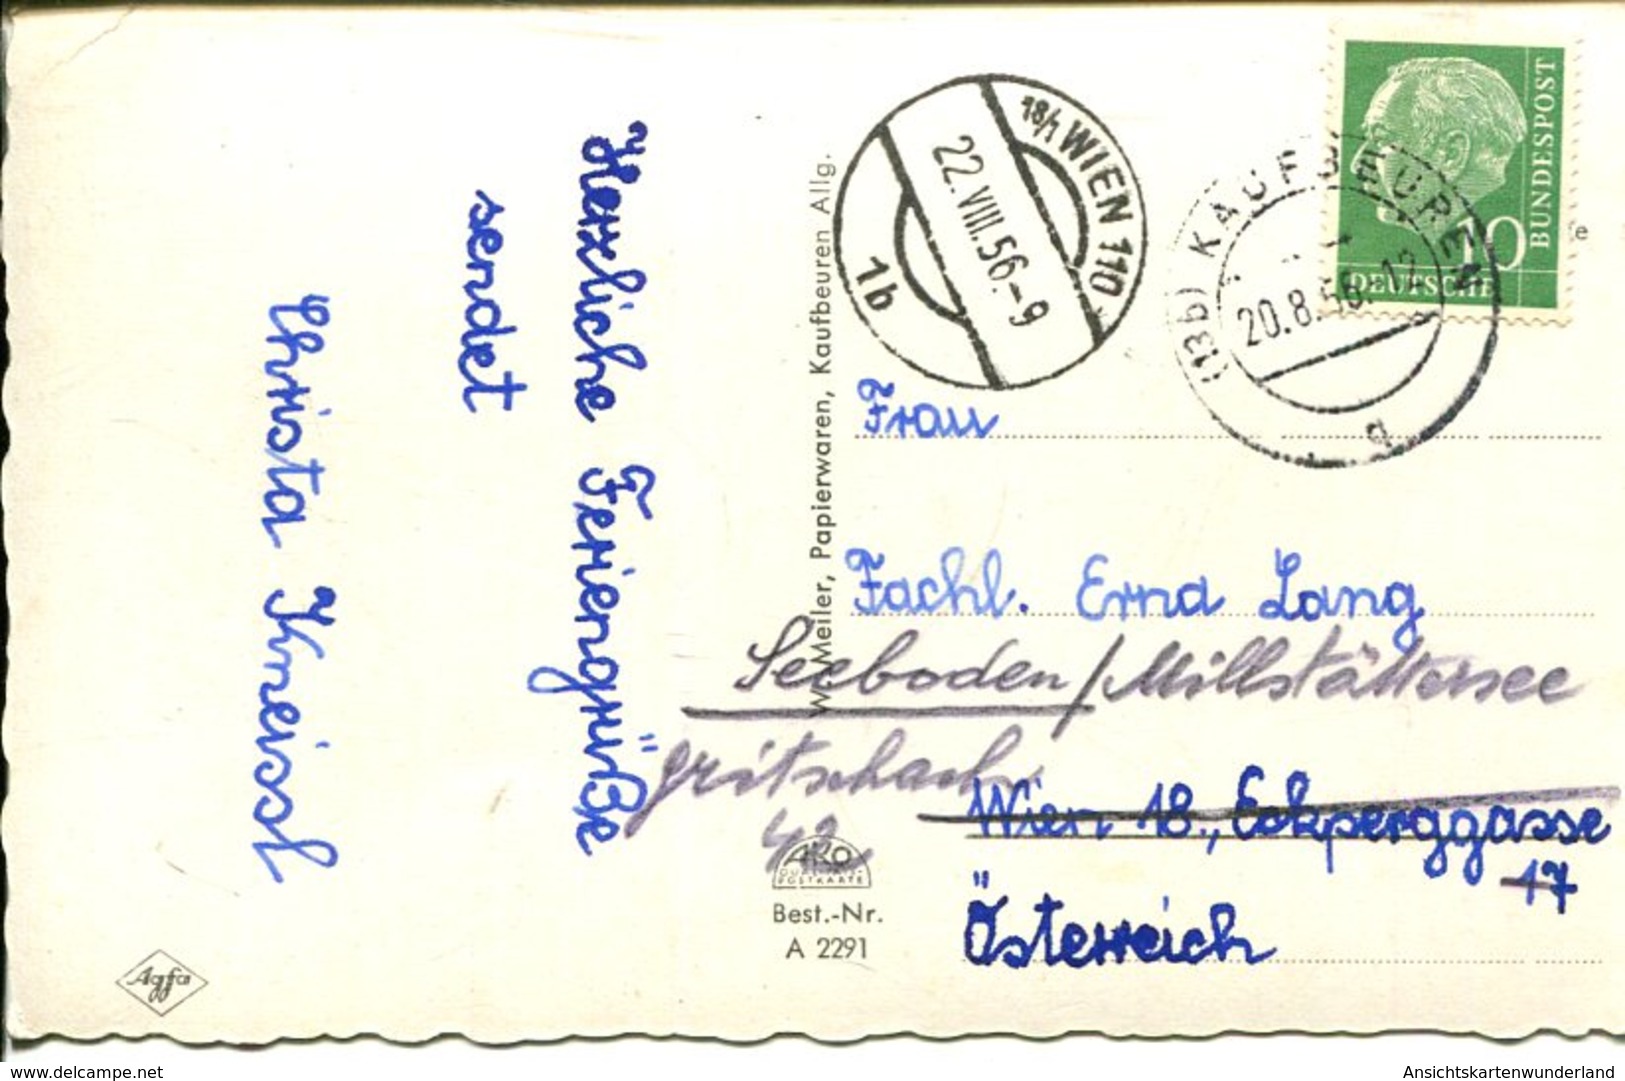 Herzliche Feriengrüße
sendet
Christa Kneissl
W. Meiler, Papierwaren, Kaufbeuren Allg.
18/1 WIEN 110
22.VIII.56.-9
1b
(13b) KAUFBEUREN
20.8.56.-12
a
BUNDESPOST
10
DEUTSCHE
Frau
Fachl. Erna Lang
Seeboden/Millstättersee
Gritschach
42
Wien 18., Eckperggasse
17
Österreich
ARO
POSTKARTE
Best.-Nr.
A 2291
Agfa
delcampe.net
Ansichtskartenwunderland